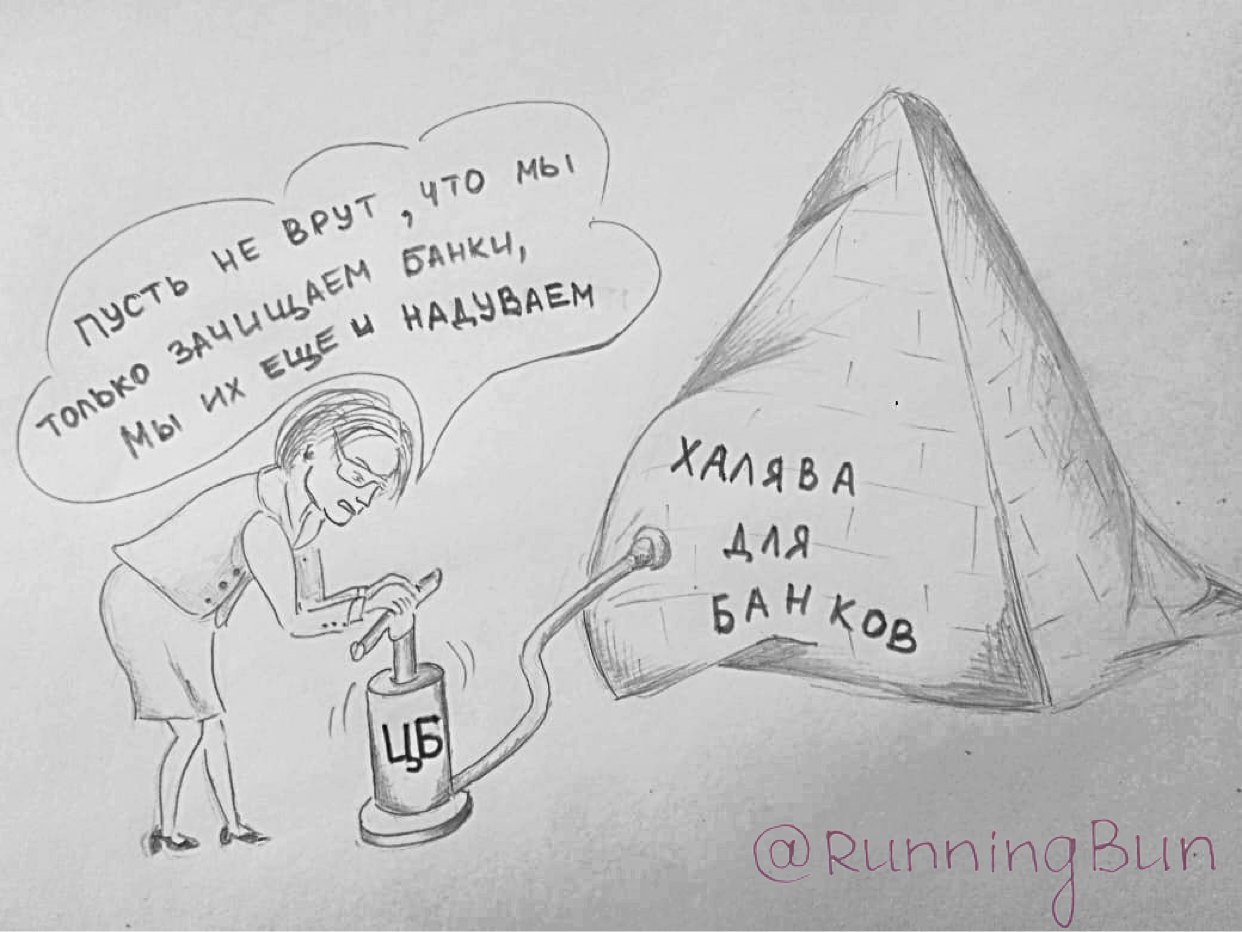 ПУСТЬ НЕ ВРУТ, ЧТО МЫ
ТОЛЬКО ЗАЧИЩАЕМ БАНКИ,
МЫ ИХ ЕЩЕ И НАДУВАЕМ
ХАЛЯВА
ДЛЯ
БАНКОВ
ЦБ
@RunningBun